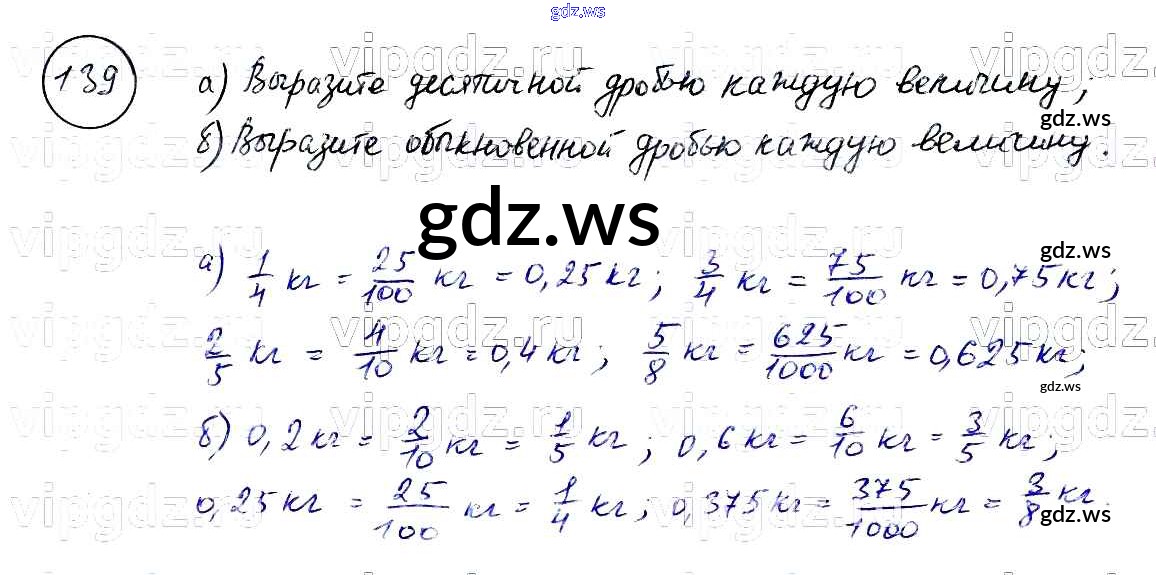 gdz.ws
139 а) Выразите десятичной дробью каждую величину;
gdz.ws
б) Выразите обыкновенной дробью каждую величину.
gdz.ws
gdz.ws
а) 1/4 кг = 25/100 кг = 0,25 кг; 3/4 кг = 75/100 кг = 0,75 кг;
2/5 кг = 4/10 кг = 0,4 кг; 5/8 кг = 625/1000 кг = 0,625 кг;
gdz.ws
б) 0,2 кг = 2/10 кг = 1/5 кг; 0,6 кг = 6/10 кг = 3/5 кг;
0,25 кг = 25/100 кг = 1/4 кг; 0,375 кг = 375/1000 кг = 3/8 кг.
gdz.ws
vipgdz.ru